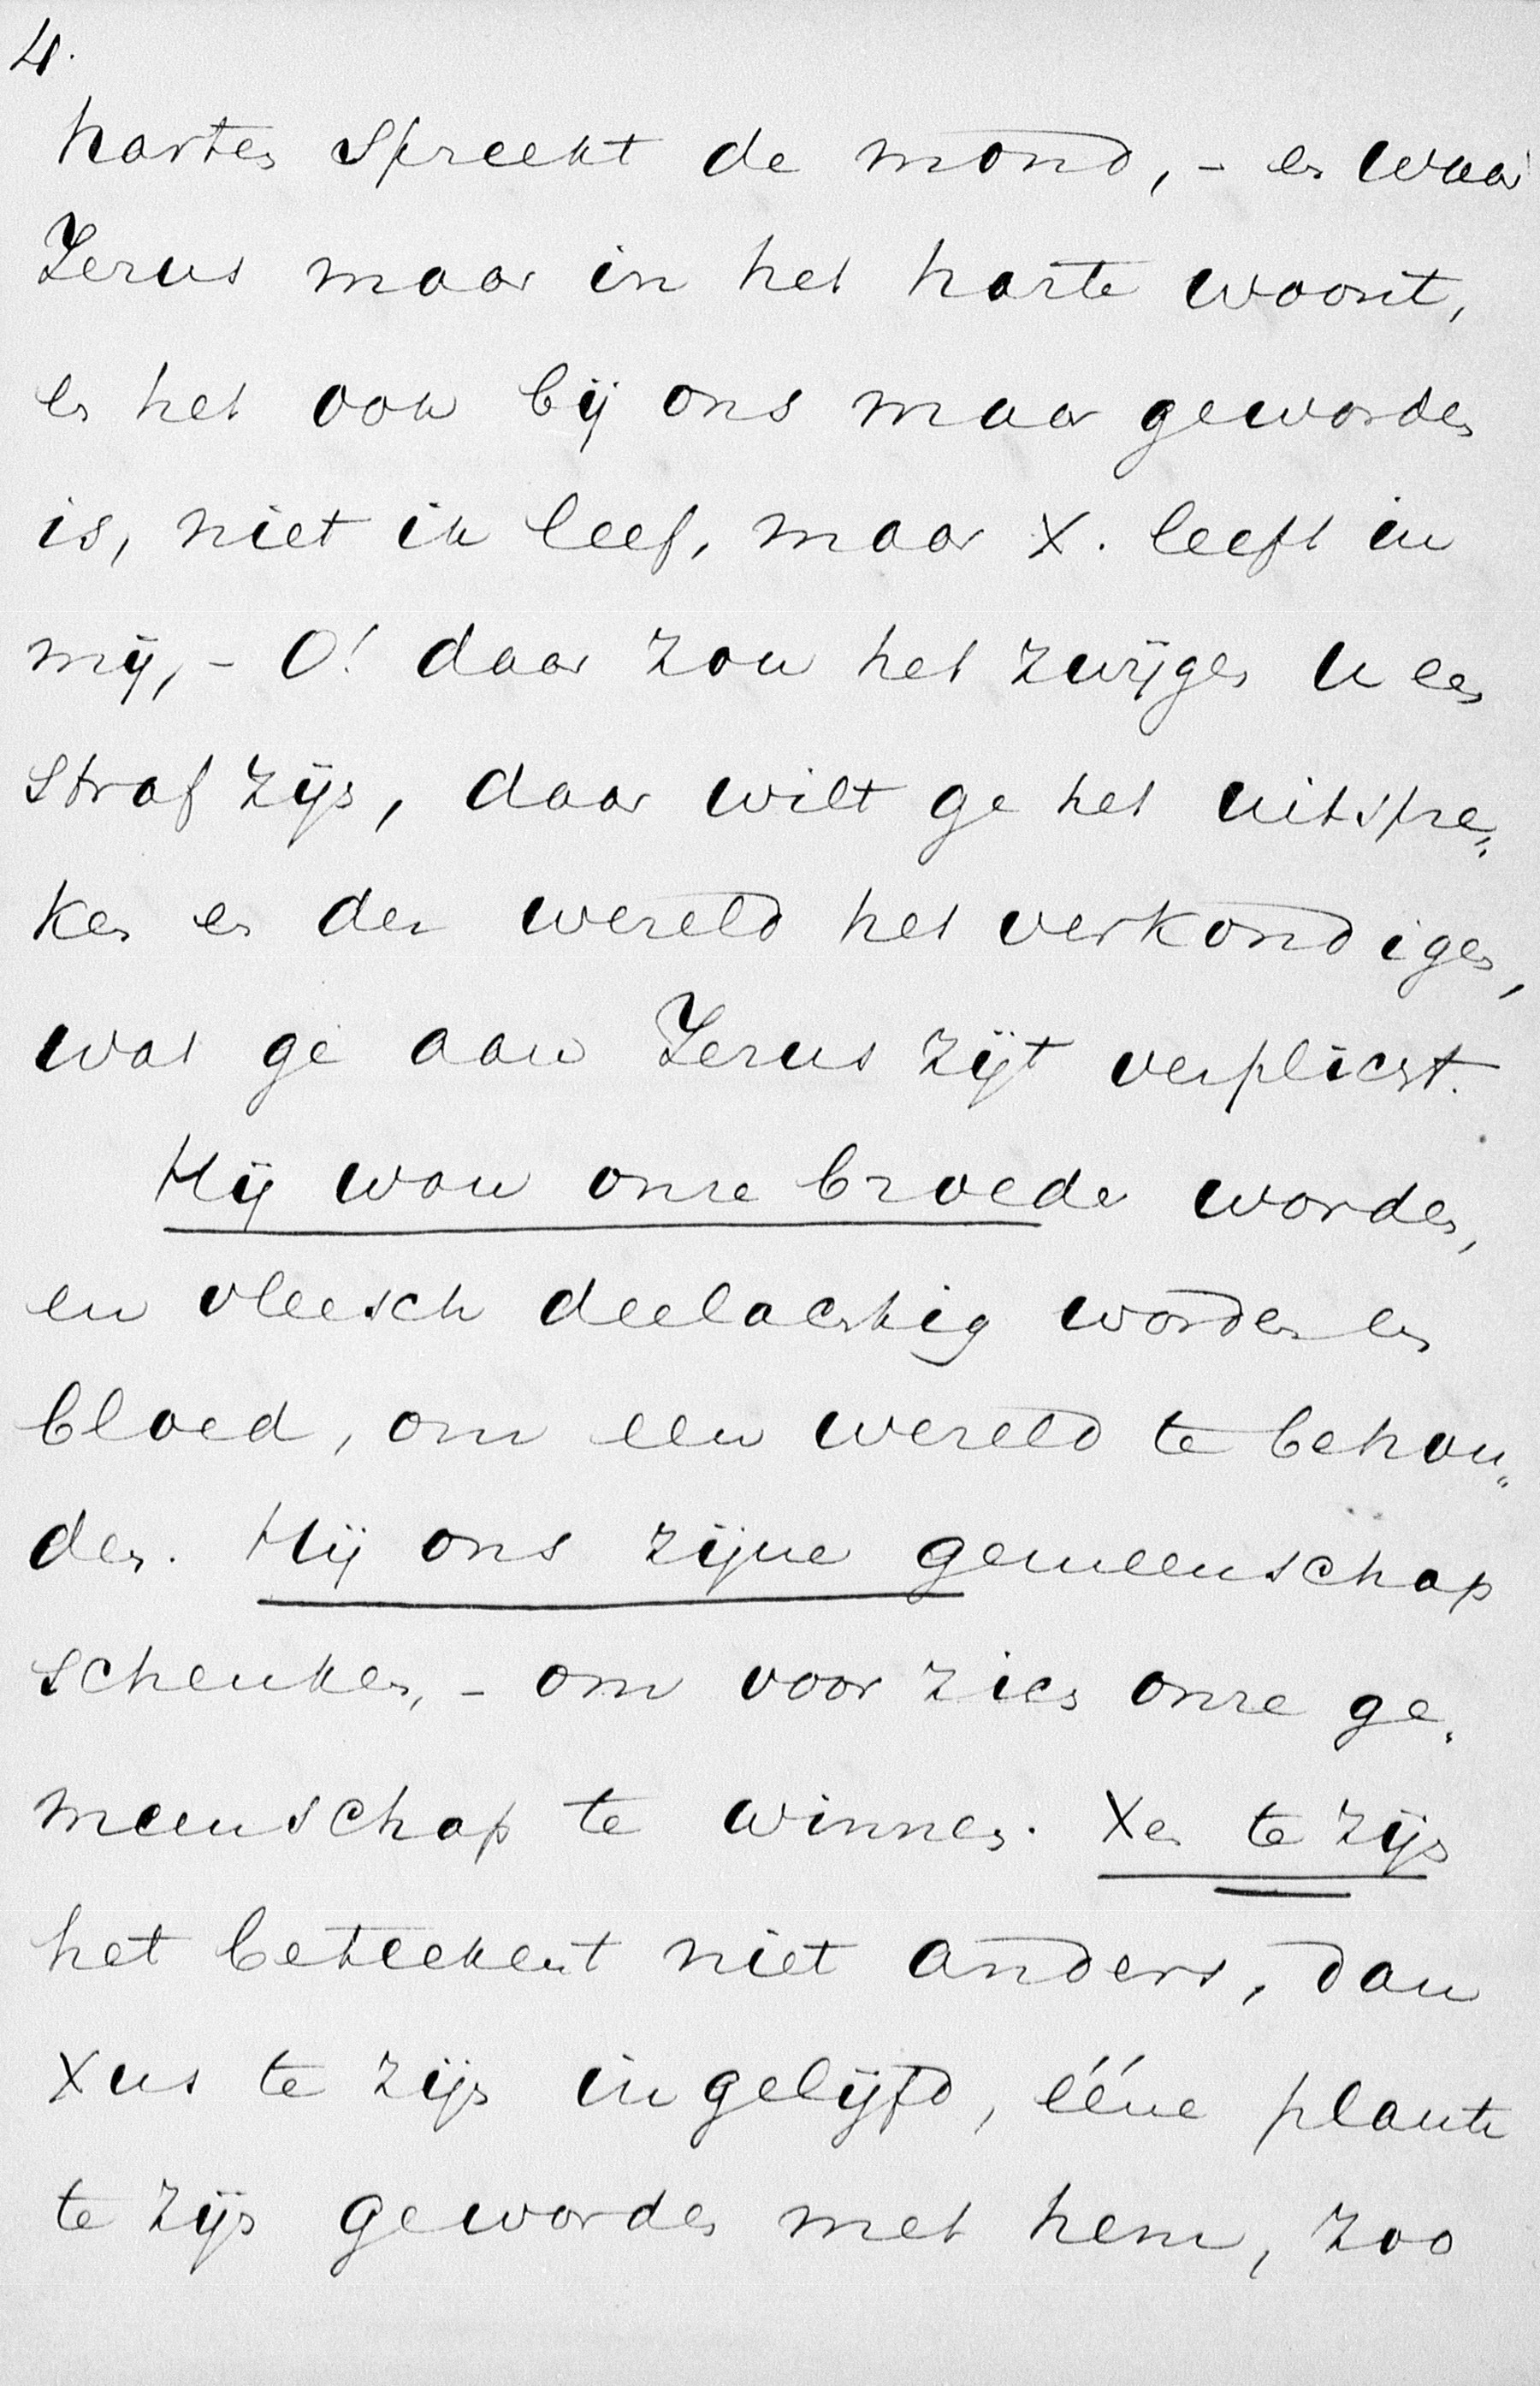 4.
harten spreekt de mond, - en waar
Jezus maar in het harte woont,
en het ook bij ons maar geworden
is, niet ik leef, maar X. leeft in
mij, - O! daar zou het zwijgen u een
straf zijn, daar wilt ge het uitspre„
ken en der wereld het verkondigen,
wat ge aan Jezus zijt verplicht.
Hij wou onze broeder worden,
en vleesch deelachtig worden en
bloed, om een wereld te behou„
den. Hij ons zijne gemeenschap
schenken, - om voor zich onze ge„
meenschap te winnen. Xen te zijn
het beteekent niet anders, dan
Xus te zijn ingelijfd, ééne plante
te zijn geworden met hem, zoo